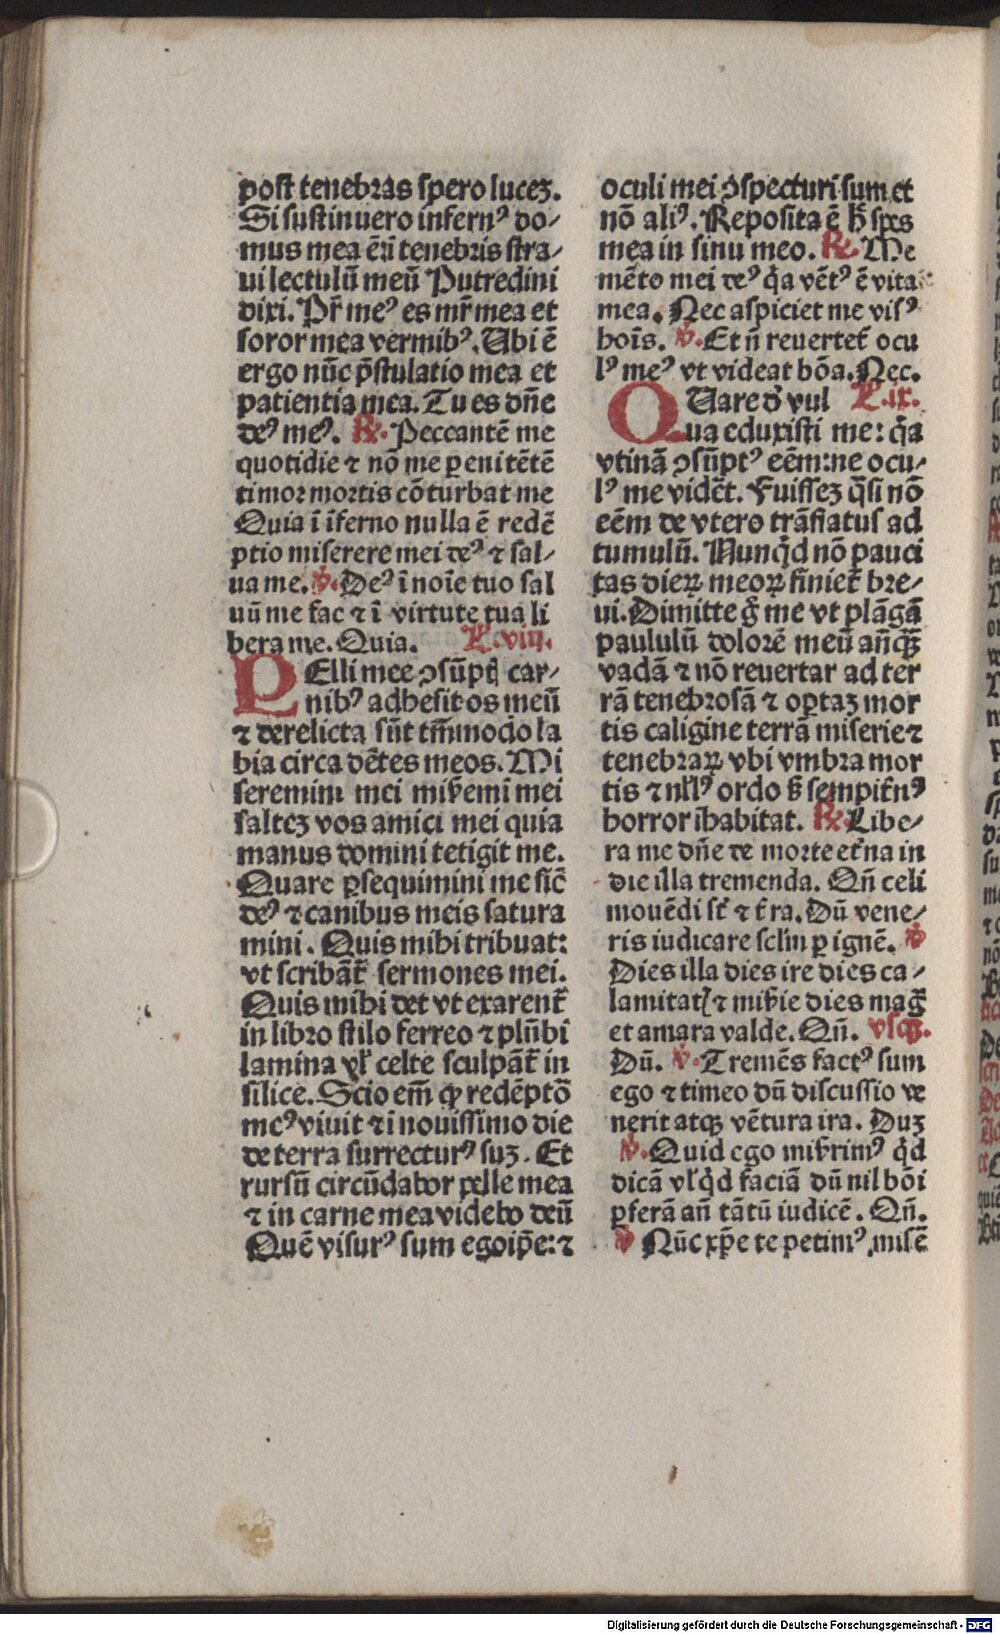 post tenebras spero lucez.
Si sustinuero infernꝰ do-
mus mea ē: ⁊ ī tenebris stra-
ui lectulū meū Putredini
dixi. Pr̄ meꝰ es mr̄ mea et
soror mea vermibꝰ. Ubi ē
ergo nūc p̄stulatio mea et
patientia mea. Tu es dn̄e
deꝰ meꝰ. ℟. Peccantē me
quotidie ⁊ nō me penitētē
timor mortis cōturbat me
Quia ī īferno nulla ē redē
ptio miserere mei deꝰ ⁊ sal-
ua me. ℣. Deꝰ ī noīe tuo sal
uū me fac ⁊ ī virtute tua li
bera me. Quia. L̄. viii.
PElli mee ↄsūptꝭ car-
nibꝰ adhesit os meū
⁊ derelicta sūt tm̄modo la
bia circa dētes meos. Mi
seremini mei misemī mei
saltez vos amici mei quia
manus domini tetigit me.
Quare ꝑsequimini me sic̄
deꝰ ⁊ canibus meis satura
mini. Quis mihi tribuat:
vt scribāt᷑ sermones mei.
Quis mihi det vt exarent᷑
in libro stilo ferreo ⁊ plūbi
lamina vl̄ celte sculpāt᷑ in
silice. Scio em̄ ꝙ redēptō
meꝰ viuit ⁊ ī nouissimo die
de terra surrecturꝰ suz. Et
rursū circūdabor pelle mea
⁊ in carne mea videbo deū
Quē visurꝰ sum ego ip̄e: ⁊
oculi mei ↄspecturi sum et
nō aliꝰ. Reposita ē h̄ spes
mea in sinu meo. ℟. Me
mēto mei deꝰ q̄a vētꝰ ē vita
mea. Nec aspiciet me visꝰ
hoīs. ℣. Et n̄ reuertet᷑ ocu
lꝰ meꝰ vt videat bōa. Nec.
QUare d̄ vul L̄. ix.
ua eduxisti me: q̄a
vtinā ↄsūptꝰ eēm: ne ocu-
lꝰ me vidēt. Fuissez q̄si nō
eēm de vtero trāslatus ad
tumulū. Nunq̄d nō pauci
tas dieꝝ meoꝝ finiet᷑ bre-
ui. Dimitte g̊ me vt plāgā
paululū dolorē meū anteq̄
vadā ⁊ nō reuertar ad ter
rā tenebrosā ⁊ opertaz mor
tis caligine terrā miserie ⁊
tenebraꝝ vbi vmbra mor
tis ⁊ nll̄ꝰ ordo s̄ sempit̄nꝰ
horror ihabitat. ℟. Libe-
ra me dn̄e de morte et̄na in
die illa tremenda. Qn̄ celi
mouēdi st̄ ⁊ t̄ra. Dū vene-
ris iudicare sclm̄ ꝑ ignē. ℣
Dies illa dies ire dies ca-
lamitatꝭ ⁊ mis̄ie dies mag̅
et amara valde. Qn̄. vsqꝫ.
Dū. ℣. Tremēs factꝰ sum
ego ⁊ timeo dū discussio ve
nerit atqꝫ vētura ira. Duz
℣. Quid ego mis̄rimꝰ q̄d
dicā vl̄ q̄d faciā dū nil bōi
ꝑferā an̄ tātū iudicē. Qn̄.
℣ Nūc xp̄e te petimꝰ, misē
Digitalisierung gefördert durch die Deutsche Forschungsgemeinschaft - DFG